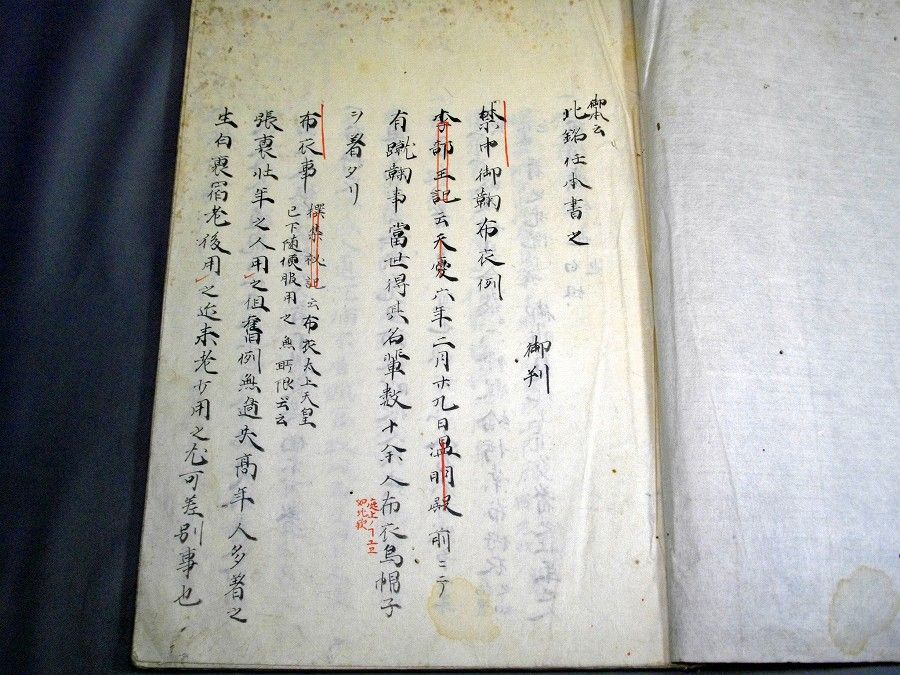 御本云
此銘任本書之
御判
禁中御鞠布衣例
李部王記云天慶六年二月廿九日温明殿前ミニテ
有蹴鞠事當世得其名輩数十余人布衣烏帽子
ヲ着タリ
布衣事 撰集秘記云布衣太上天皇
已下随便服用之無所限云云
張裏壮年之人用之但舊例無過失高年人多着之
生白裏宿老後用之近来老少用之尤可差別事也